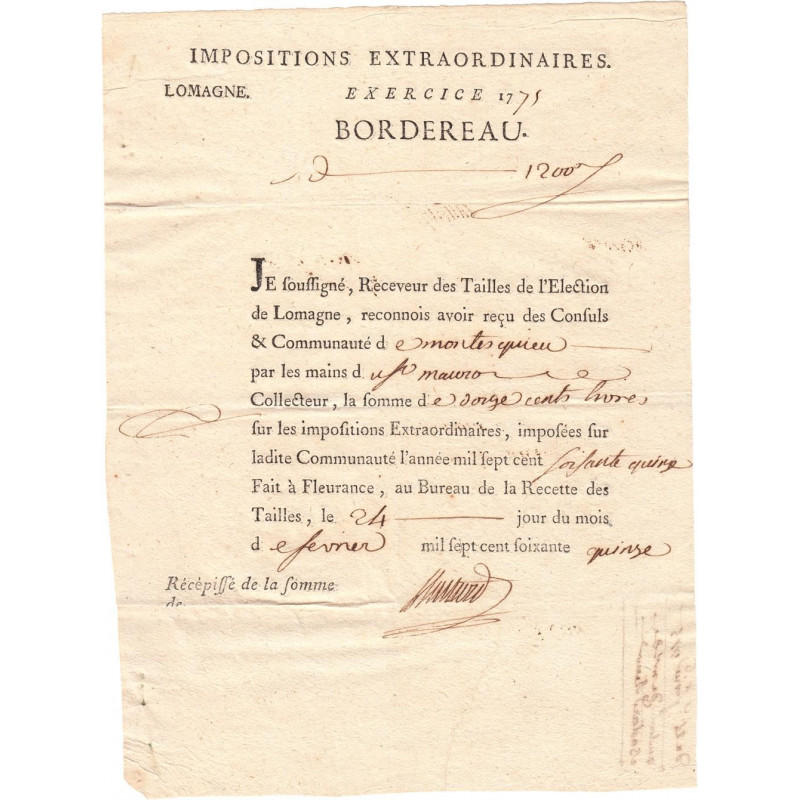 IMPOSITIONS EXTRAORDINAIRES.
LOMAGNE. EXERCICE 1775
BORDEREAU.
D 1200
JE soussigné, Receveur des Tailles de l'Election
de Lomagne, reconnois avoir reçu des Consuls
& Communauté de montesquieu
par les mains du Sr mauro
Collecteur, la somme de douze cents livres
sur les impositions Extraordinaires, imposées sur
ladite Communauté l'année mil sept cent soisante quinze
Fait à Fleurance, au Bureau de la Recette des
Tailles, le 24 jour du mois
de fevrier mil sept cent soixante quinze
Récépissé de la somme
de